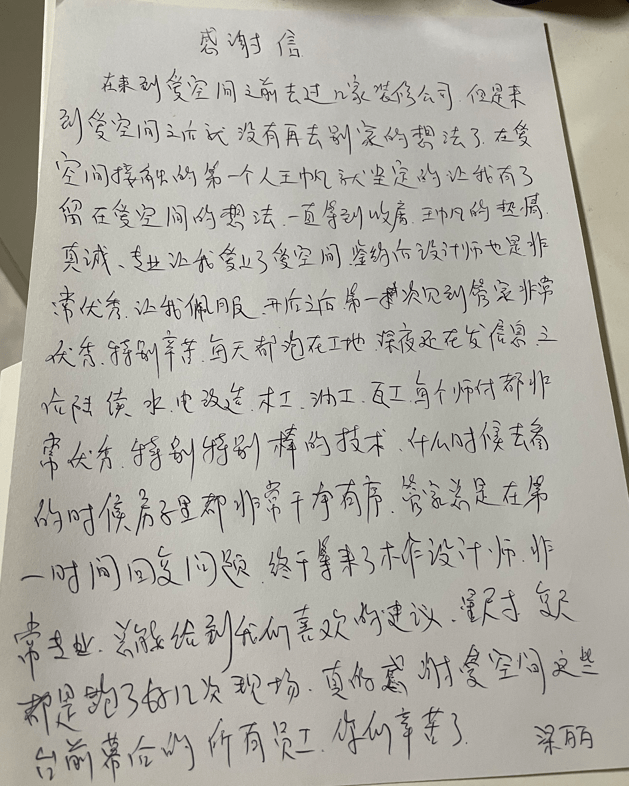 感谢信
在来到爱空间之前去过几家装修公司.但是来
到爱空间之后就没有再去别家的想法了.在爱
空间接触的第一个人王帆就坚定的让我有了
留在爱空间的想法.一直等到收房.王帆的热情.
真诚、专业让我爱上了爱空间.签约后设计师也是非
常优秀.让我佩服.开启之后第一次见到管家非常
优秀.特别辛苦.每天都泡在工地.深夜还在发信息.之
后陆续水.电改造.木工.油工.瓦工.每个师付都非
常优秀.特别特别棒的技术.什么时候去看
的时候房子里都非常干净有序.管家总是在第
一时间回复问题.终于等来了木作设计师.非
常专业.总能给到我们喜欢的建议.量尺寸复尺
都是跑了好几次现场.真的感谢爱空间这些
台前幕后的所有员工.你们辛苦了.
梁丽